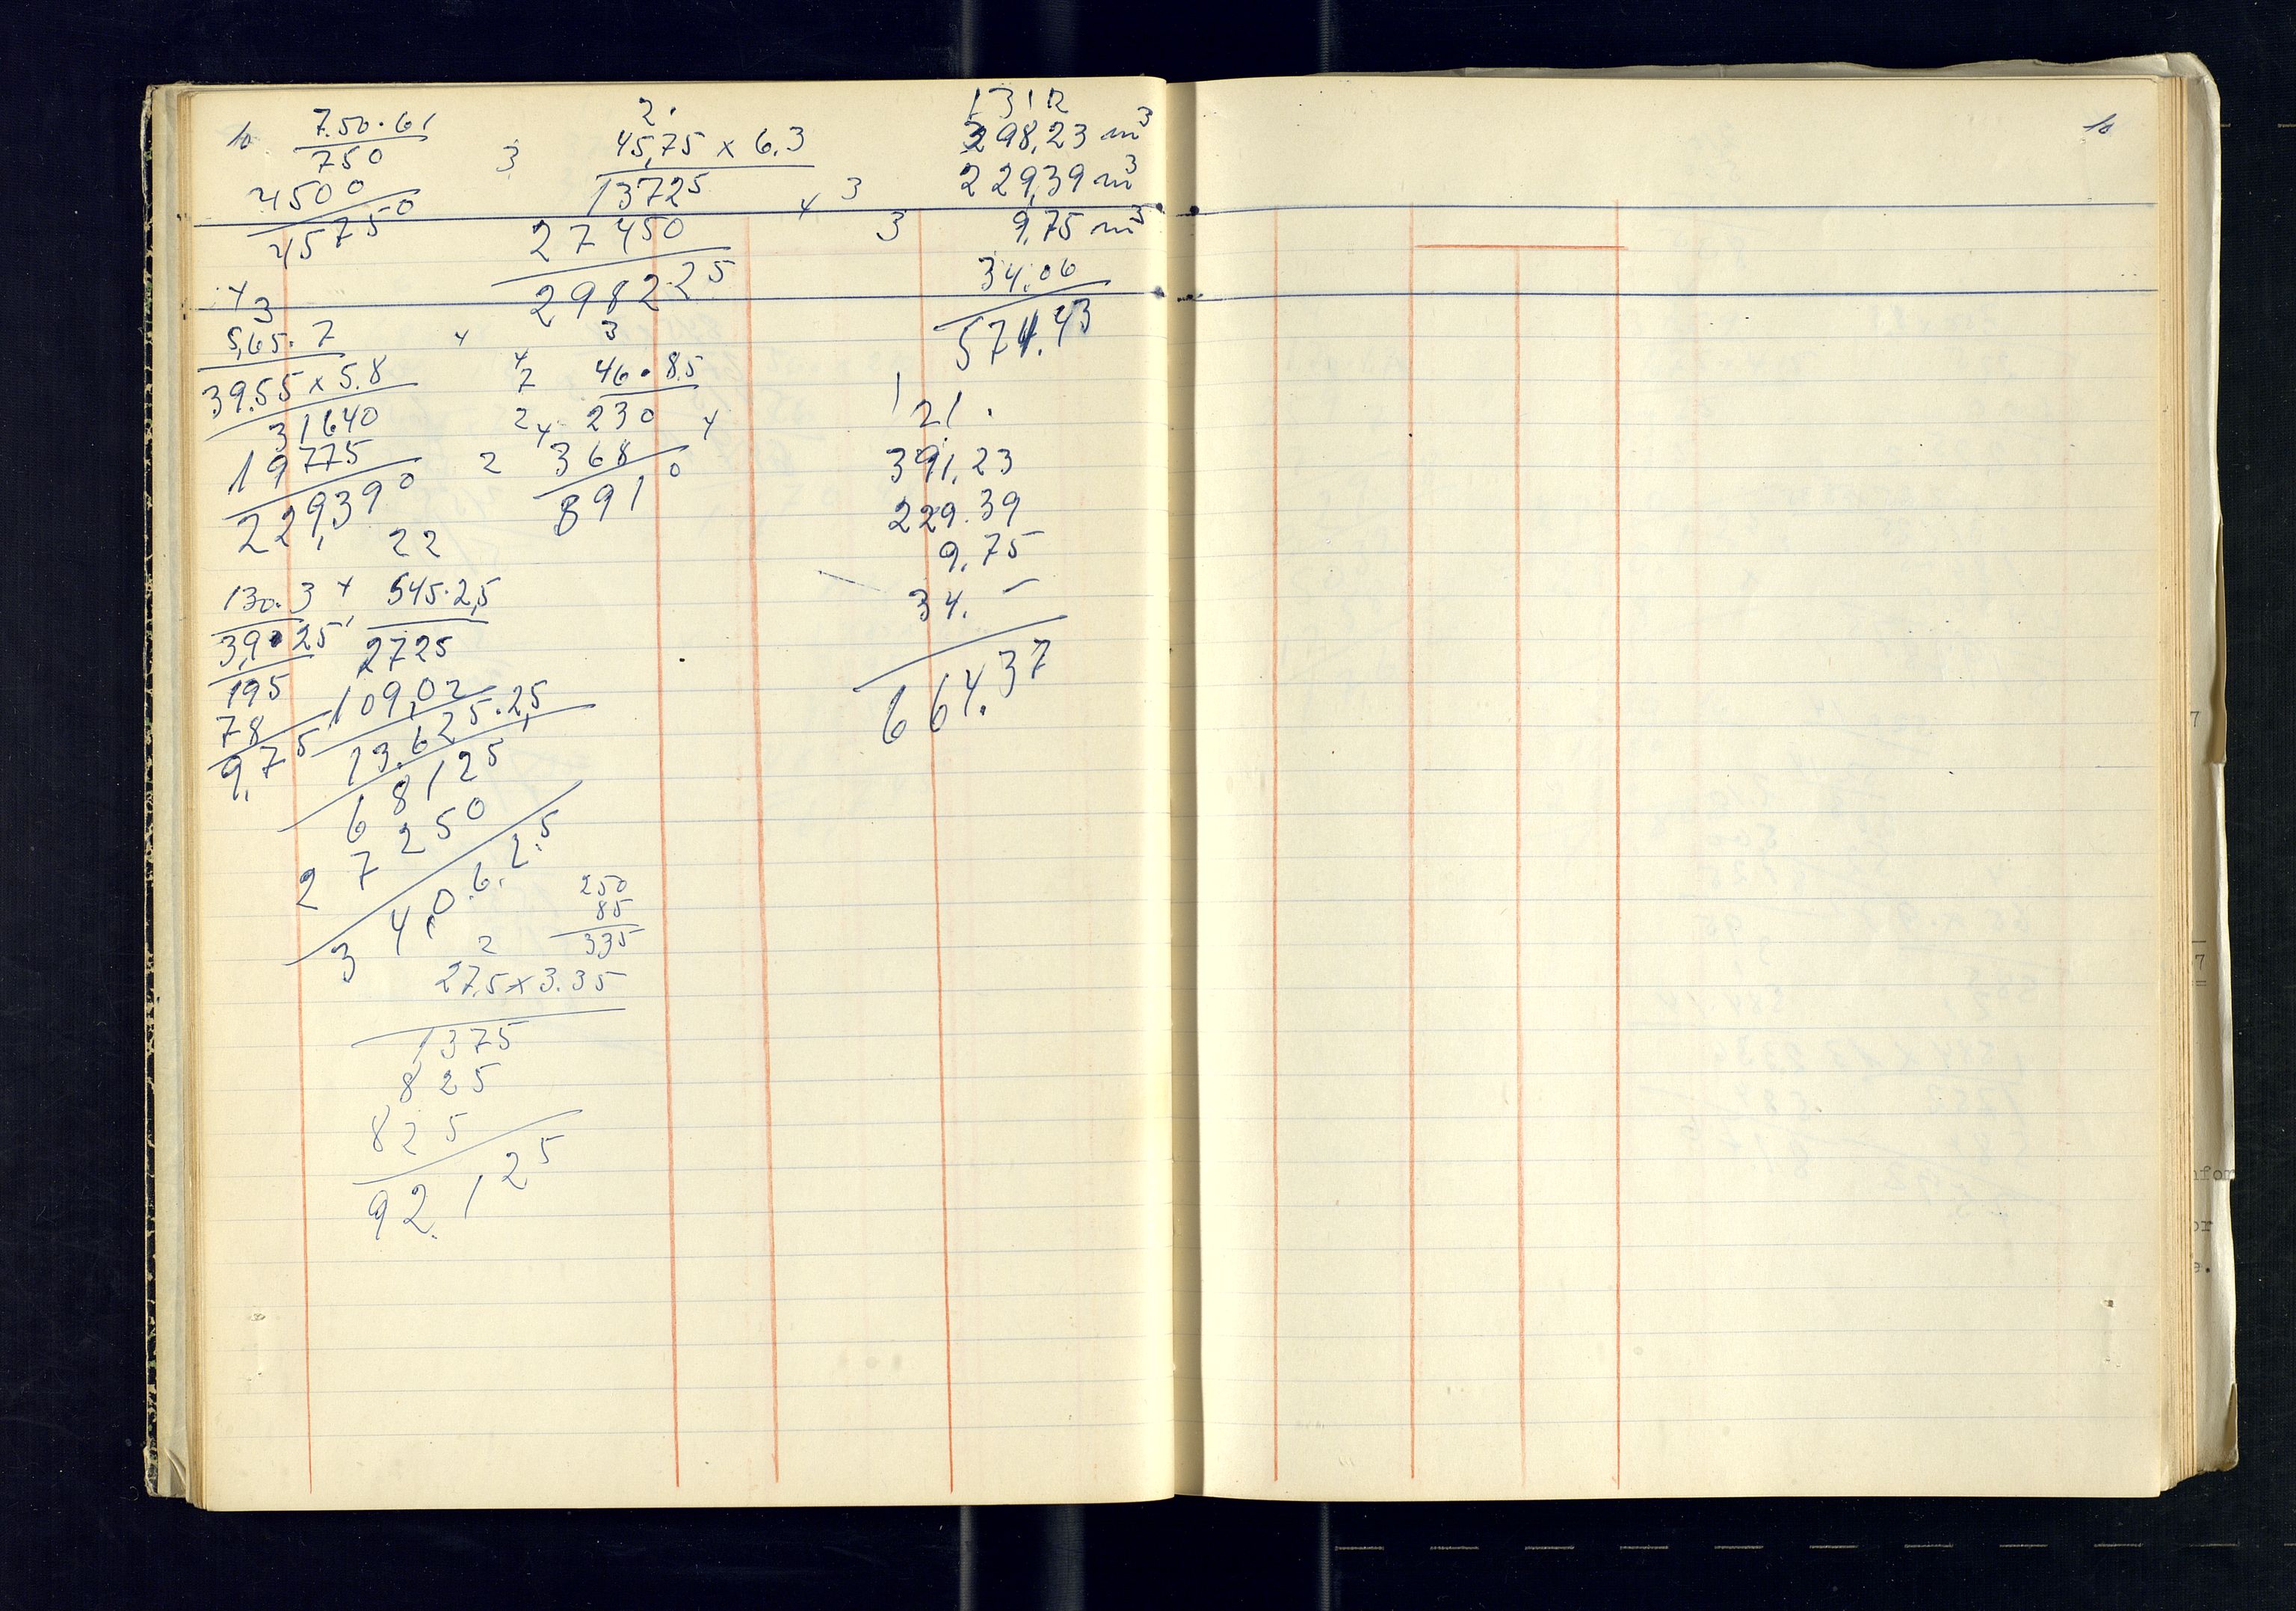 10
7.50 · 61
750
4500
45750
3
2.
45,75 x 6.3
13725
27450
298225
1312
298,23 m³
229,39 m³
9,75 m³
34.06
571.43
3
3
3
5,65 · 7
39.55 x 5.8
31640
19775
229,390
3
46 · 85
230
3680
8910
2
2
121.
391,23
229.39
9,75
34. –
664.37
22
130 · 3
390 25
195
78
9,75
545 · 2,5
2725
10902
13.625 · 2,5
68125
27250
34,0.6.2.5
250
85
335
2
27,5 x 3.35
1375
825
825
92.125
10
7
7
nfor
or
e.